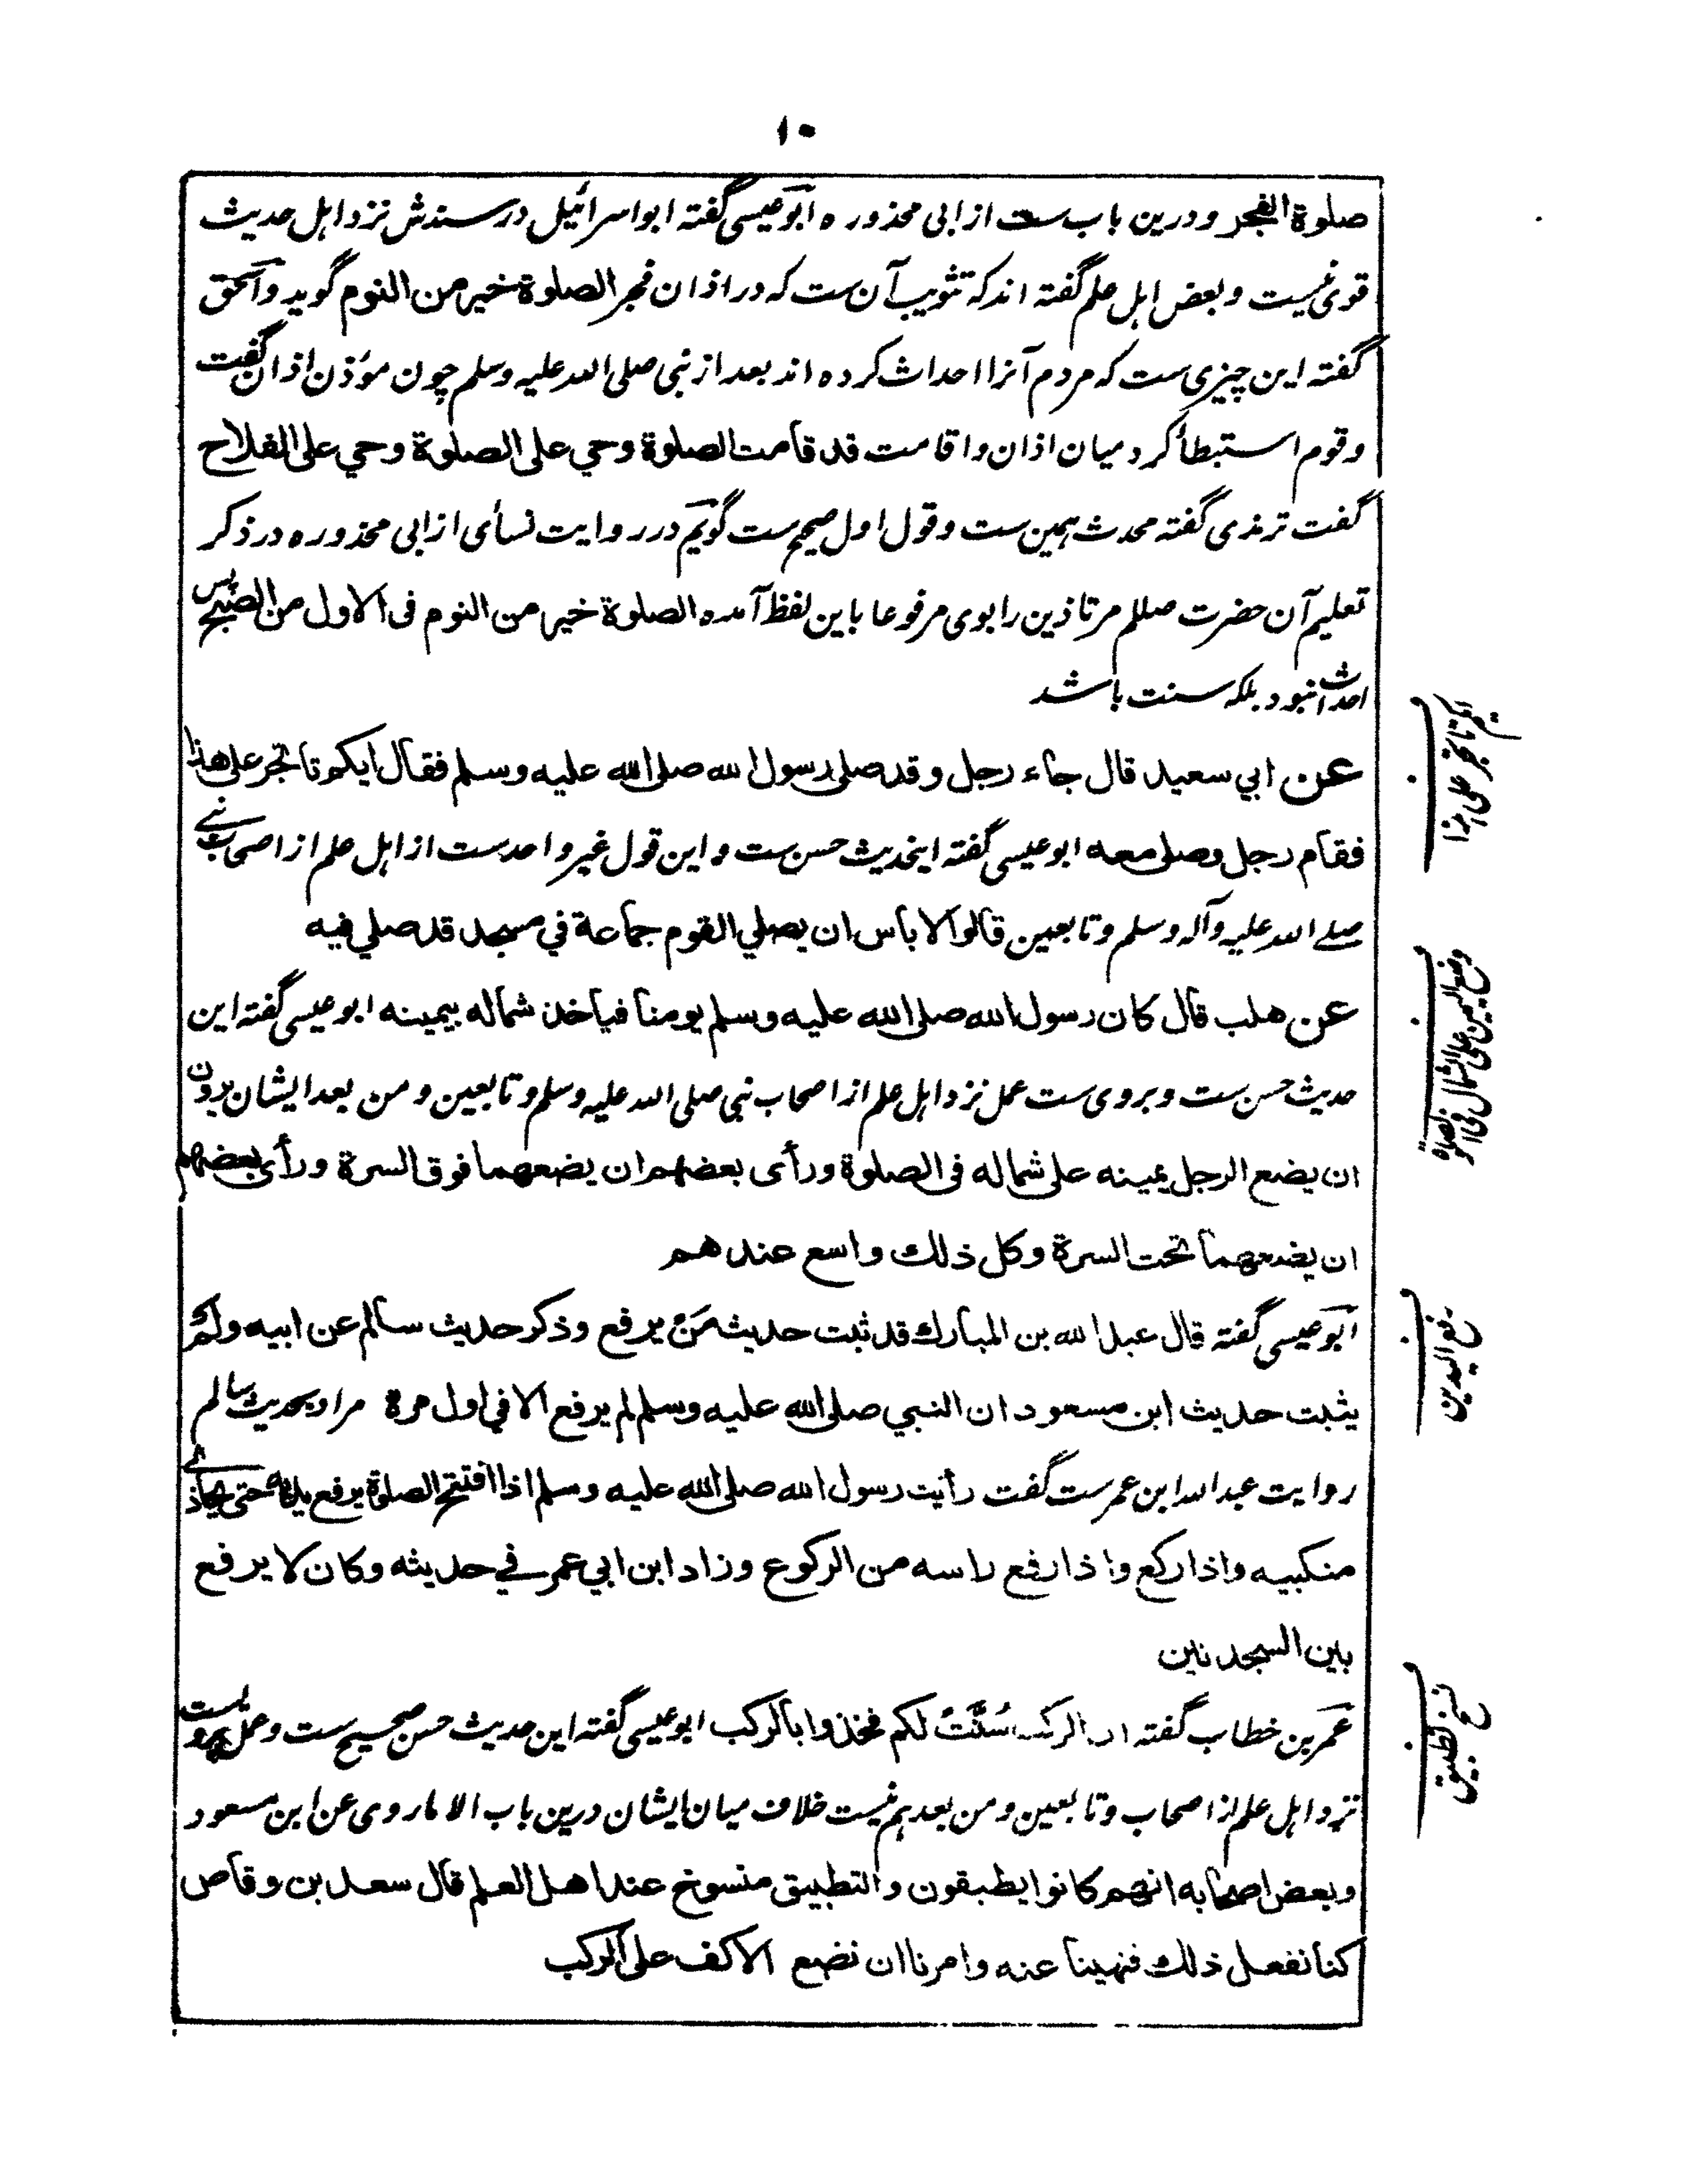 ۱۰
صلوة الفجر ودرین باب ست از ابی محذوره ابوعیسی گفته ابواسرائیل در سندش نزد اهل حدیث
قوی نیست وبعض اهل علم گفته اند که تثویب آن ست که در اذان فجر الصلوة خیر من النوم گوید واسحق
گفته این چیزی ست که مردم آنرا احداث کرده اند بعد از نبی صلی الله علیه وسلم چون مؤذن اذان گفت
وقوم استبطأ کرد میان اذان واقامت قد قامت الصلوة وحي على الصلوة وحي على الفلاح
گفت ترمذی گفته محدث همین ست وقول اول صحیح ست گویم در روایت نسائی از ابی محذوره در ذکر
تعلیم آن حضرت صللم مر تاذین را بوی مرفوعا باین لفظ آمده الصلوة خیر من النوم فی الاول من الصبح پس
احداث نبود بلکه سنت باشد
عن ابي سعيد قال جاء رجل وقد صلى رسول الله صلى الله عليه وسلم فقال ايكم تاتجر على هذا
فقام رجل وصلى معه ابوعیسی گفته اینحدیث حسن ست واین قول غیر واحدست از اهل علم از اصحاب نبی
صلے الله علیه وآله وسلم وتابعین قالوا لا باس ان يصلي القوم جماعة في مسجد قد صلي فيه
عن هلب قال كان رسول الله صلى الله عليه وسلم يومنا فياخذ شماله بيمينه ابوعیسی گفته این
حدیث حسن ست وبروی ست عمل نزد اهل علم از اصحاب نبی صلی الله علیه وسلم وتابعین ومن بعد ایشان یرون
ان يضع الرجل يمينه على شماله فى الصلوة ورأى بعضهم ان يضعهما فوق السرة ورأى بعضهم
ان يضعهما تحت السرة وكل ذلك واسع عندهم
ابوعیسی گفته قال عبد الله بن المبارك قد ثبت حديث من يرفع وذكر حديث سالم عن ابيه ولم
يثبت حديث ابن مسعود ان النبي صلى الله عليه وسلم لم يرفع الا في اول مرة مراد بحدیث سالم
روایت عبدالله ابن عمرست گفت رأيت رسول الله صلى الله عليه وسلم اذا افتتح الصلوة يرفع يديه حتى يحاذ
منكبيه واذا ركع واذا رفع راسه من الركوع وزاد ابن ابي عمر في حديثه وكان لا يرفع
بين السجدتين
عمر بن خطاب گفته ان الركب سُنَّتْ لكم فخذوا بالركب ابوعیسی گفته این حدیث حسن صحیح ست وعمل بروست
نزد اهل علم از اصحاب وتابعین ومن بعدهم نیست خلاف میان ایشان درین باب الا ما روی عن ابن مسعود
وبعض اصحابه انهم كانوا يطبقون والتطبيق منسوخ عند اهل العلم قال سعد بن وقاص
كنا نفعل ذلك فنهينا عنه وامرنا ان نضع الاكف على الركب
ایکم تاتجر علی هذا
وضع الیمین علی الشمال فی الصلوة
رفع الیدین
نسخ تطبیق